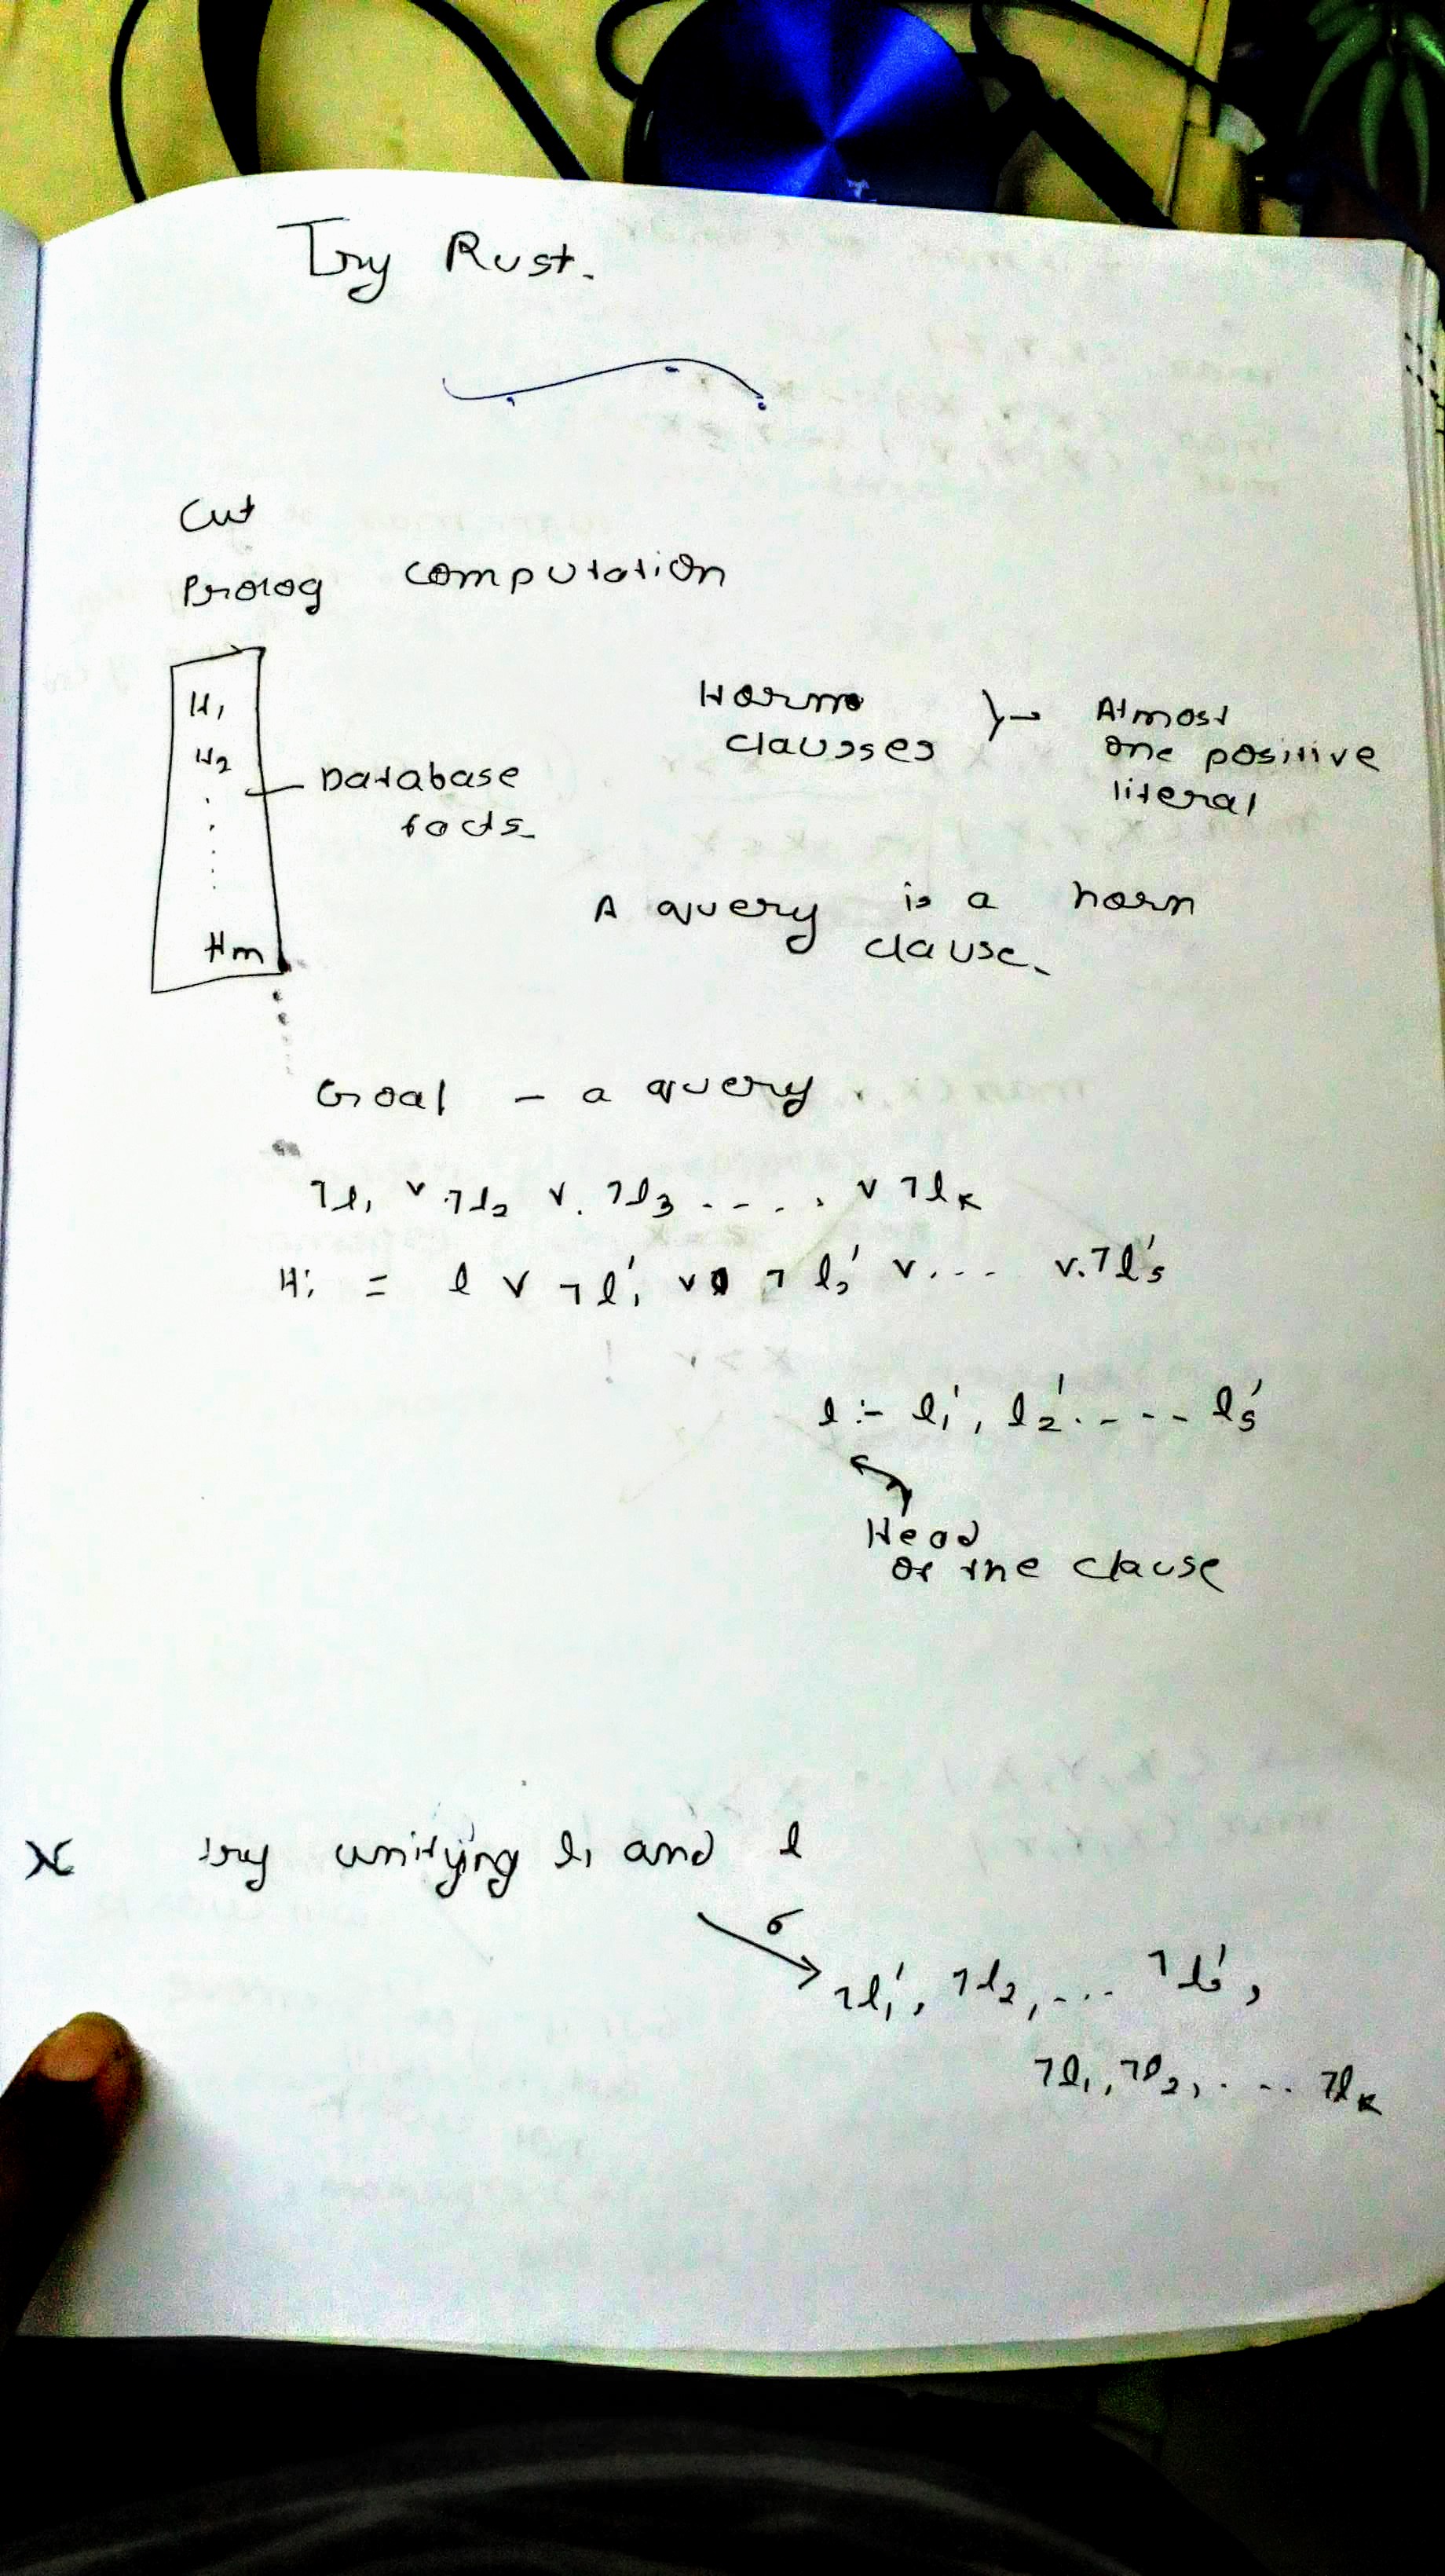 Try Rust.
Cut
Prolog computation
H₁
H₂
Hm
Database
facts.
Horn
clausses
Atmost
one positive
literal
A query is a horn
clause.
Goal - a query
¬l₁ ∨ ¬l₂ ∨ ¬l₃ .... ∨ ¬lₖ
Hi = l ∨ ¬l₁' ∨ ¬l₂' ∨ ... ∨ ¬ls'
l :- l₁', l₂' .... ls'
Head
of the clause
Try unifying l₁ and l
σ
¬l₁', ¬l₂, ... ¬ls',
¬l₁, ¬l₂, ... ¬lₖ